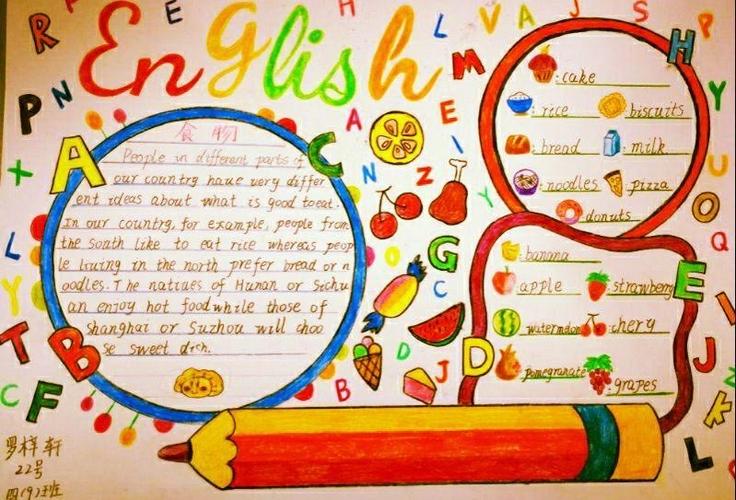 English
食物
People in different parts of
our country have very differ
ent ideas about what is good to eat.
In our country, for example, people from
the south like to eat rice whereas peop
le living in the north prefer bread or n
oodles. The natives of Hunan or Sichu
an enjoy hot food while those of
Shanghai or Suzhou will choo
se sweet dich.
:cake
:rice
:biscuits
:bread
:milk
:noodles
:pizza
:donuts
:banana
:apple
:strawberry
:watermelon
:chery
:pomegranate
:grapes
A
C
B
F
D
E
H
M
G
R
P
N
E
H
L
V
A
J
S
P
Y
U
O
Q
I
J
Z
K
L
X
L
Y
T
C
A
E
I
N
Z
Y
O
C
D
J
B
22号
四(9)班